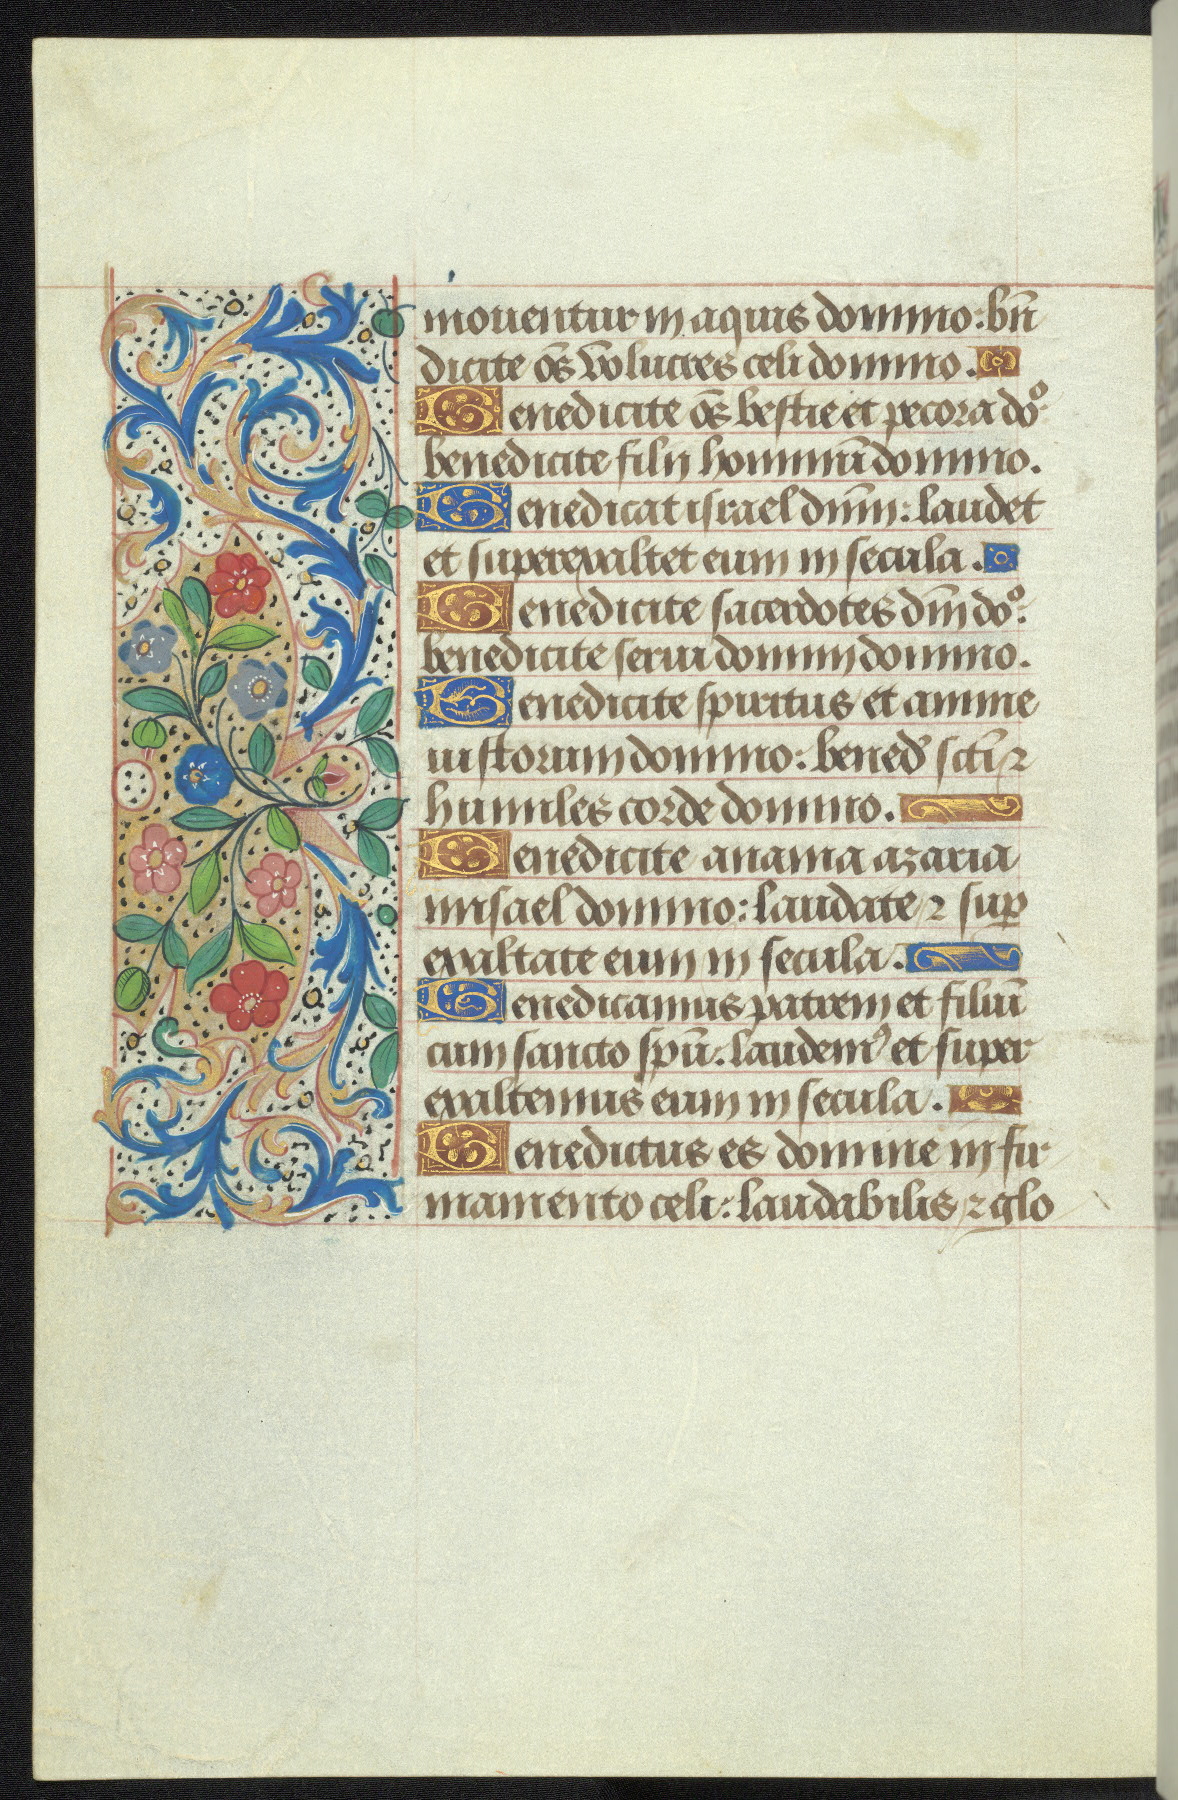 mouentur in aquis domino: bn̄
dicite oēs volucres celi domino.
Benedicite oēs bestie et pecora doº:
benedicite filij hominū domino.
Benedicat israel dnm̄: laudet
et superexaltet eum in secula.
Benedicite sacerdotes dn̄i doº:
benedicite serui domini domino.
Benedicite spiritus et anime
iustorum domino: bened̄ sct̄i ⁊
humiles corde domino.
Benedicite anania azaria
misael domino: laudate ⁊ suꝑ
exaltate eum in secula.
Benedicamus patrem et filiū
cum sancto spū: laudemꝰ et super
exaltemus eum in secula.
Benedictus es domine in fir
mamento celi: laudabilis ⁊ glo